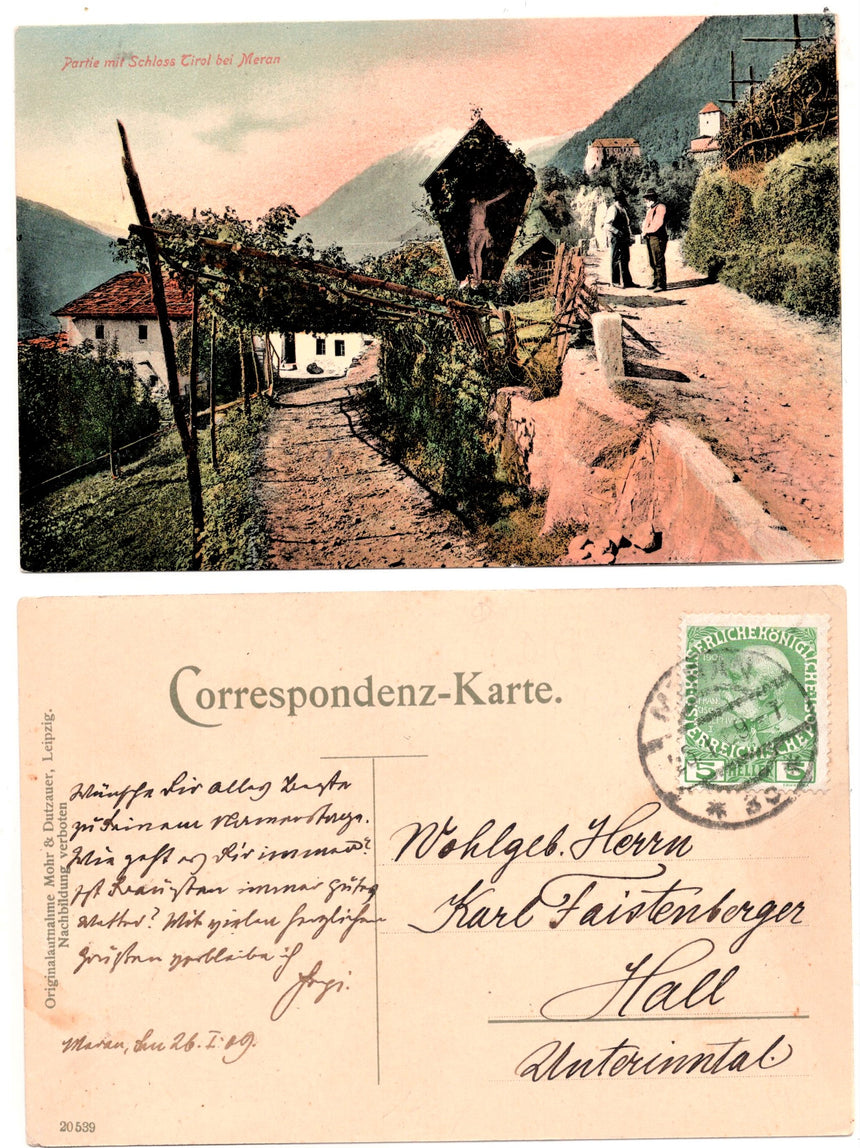 Partie mit Schloss Tirol bei Meran
Correspondenz-Karte.
Originalaufnahme Mohr & Dutzauer, Leipzig.
Nachbildung verboten
KAISERLICHE KÖNIGLICHE
ÖSTERREICHISCHE
5 HELLER 5
MERAN
Wünsche Dir alles Beste
zu Deinem Namenstage.
Wie geht es Dir immer?
Ist draußen immer gutes
Wetter? Mit vielen herzlichen
Grüßen verbleibe ich
Meran, den 26. I. 09.
Wohlgeb. Herrn
Karl Faistenberger
Hall
Unterinntal.
20539